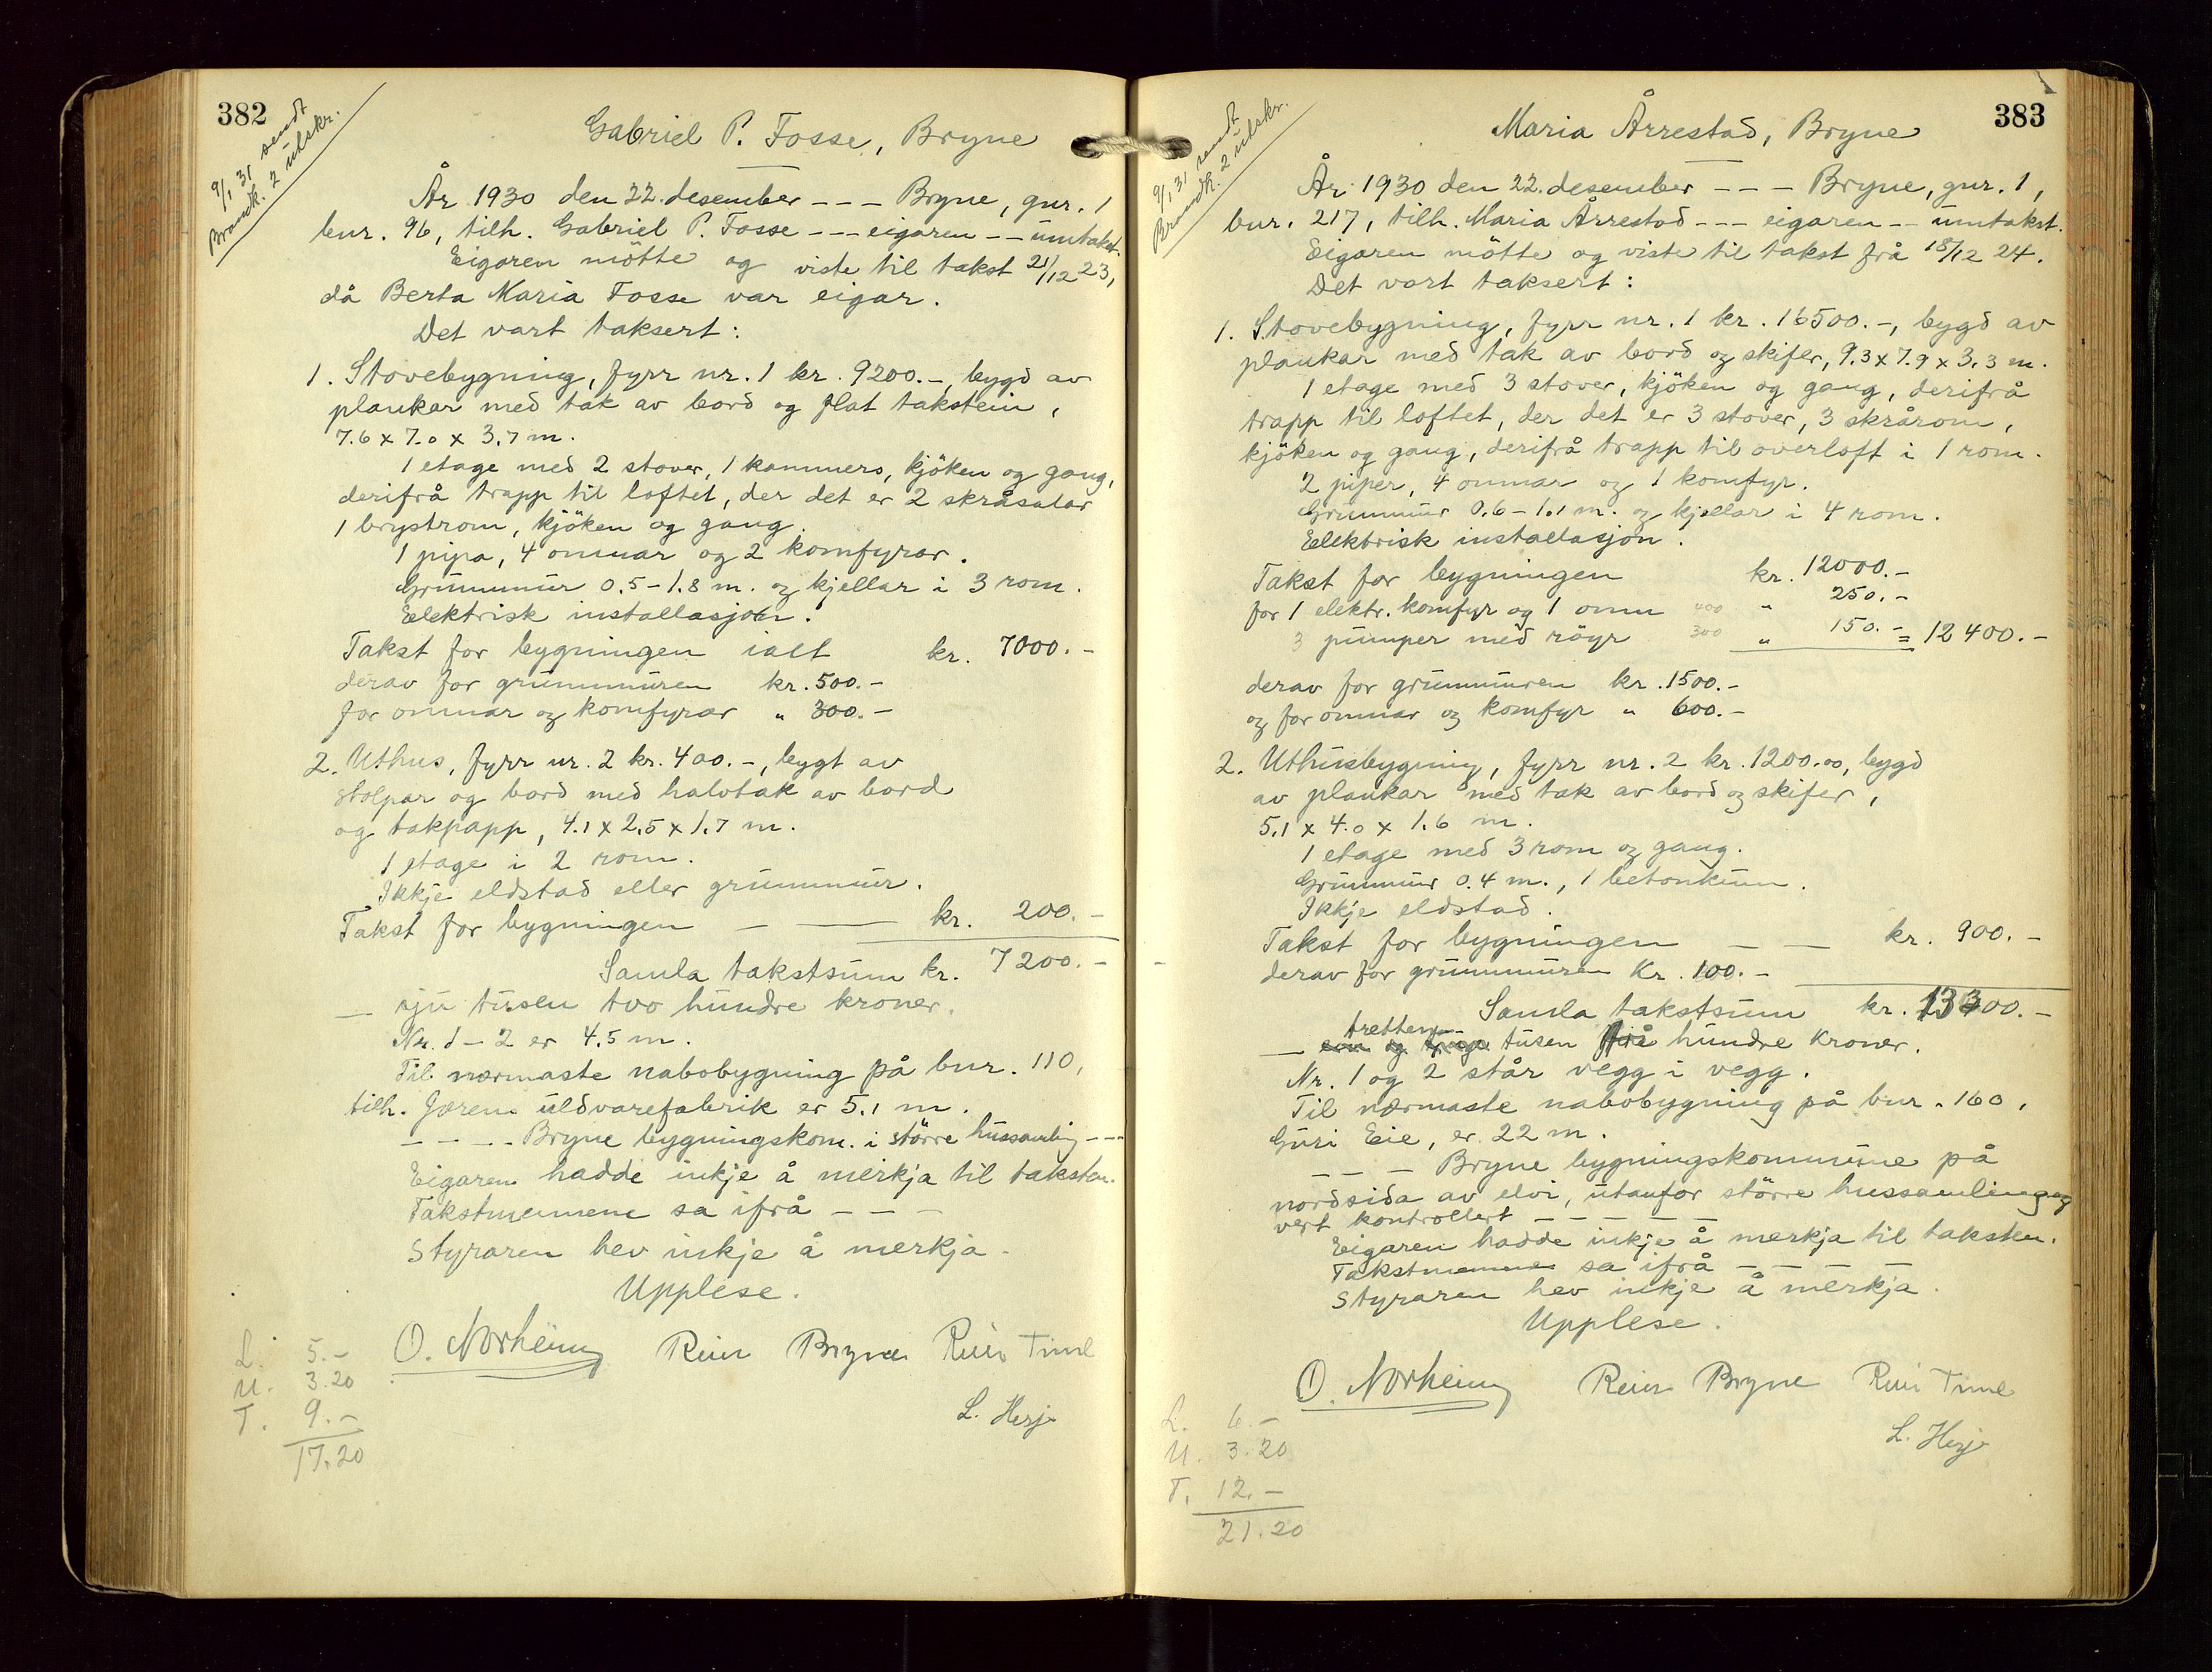 382
9/1 31 sendt
Brandk. 2 utskr.
Gabriel P. Fosse, Bryne
År 1930 den 22. desember --- Bryne, gnr. 1
bnr. 96, tilh. Gabriel P. Fosse --- eigaren -- umtakst.
Eigaren møtte og viste til takst 21/12 23,
då Berta Maria Fosse var eigar.
Det vart taksert:
1. Stovebygning, fyrr nr. 1 kr. 9200.-, bygd av
plankar med tak av bord og flat takstein,
7.6 x 7.0 x 3.7 m.
1 etage med 2 stover, 1 kammers, kjöken og gang,
derifrå trapp til loftet, der det er 2 skråsalar
1 brystrom, kjöken og gang.
1 pipa, 4 omnar og 2 komfyrar.
Grunnmur 0.5-1.8 m. og kjellar i 3 rom.
Elektrisk installasjon.
Takst for bygningen ialt kr. 7000.-
derav for grunnmuren kr. 500.-
for omnar og komfyrar " 300.-
2. Uthus, fyrr nr. 2 kr. 400.-, bygt av
stolpar og bord med halvtak av bord
og takpapp, 4.1 x 2.5 x 1.7 m.
1 etage i 2 rom.
Ikkje eldstad eller grunnmur.
Takst for bygningen — — kr. 200.-
Samla takstsum kr. 7200.-
— sju tusen tvo hundre kroner.
Nr. 1-2 er 4.5 m.
Til nærmaste nabobygning på bnr. 110,
tilh. Jæren uldvarefabrik er 5.1 m.
---- Bryne bygningskom. i större hussamling ---
Eigaren hadde inkje å merkja til taksten.
Takstmennene sa ifrå ---
Styraren hev inkje å merkja -
Upplese.
O. Norheim Reier Bryne Reier Time
L. Herj
L. 5.-
U. 3.20
T. 9.-
17.20
383
9/1 31 sendt
Brandk. 2 utskr.
Maria Årrestad, Bryne
År 1930 den 22. desember --- Bryne, gnr. 1,
bnr. 217, tilh. Maria Årrestad --- eigaren -- umtakst.
Eigaren møtte og viste til takst frå 18/12 24.
Det vart taksert:
1. Stovebygning, fyrr nr. 1 kr. 16500.-, bygd av
plankar med tak av bord og skifer, 9.3 x 7.9 x 3.3 m.
1 etage med 3 stover, kjöken og gang, derifrå
trapp til loftet, der det er 3 stover, 3 skrårom,
kjöken og gang, derifrå trapp til overloft i 1 rom.
2 piper, 4 omnar og 1 komfyr.
Grunnmur 0.6-1.1 m. og kjellar i 4 rom.
Elektrisk installasjon.
Takst for bygningen kr. 12000.-
for 1 elektr. komfyr og 1 omn 400 " 250.-
3 pumper med röyr 300 " 150.- = 12400.-
derav for grunnmuren kr. 1500.-
og for omnar og komfyr " 600.-
2. Uthusbygning, fyrr nr. 2 kr. 1200.00, bygd
av plankar med tak av bord og skifer,
5.1 x 4.0 x 1.6 m.
1 etage med 3 rom og gang.
Grunnmur 0.4 m., 1 betonkum.
Ikkje eldstad.
Takst for bygningen — — kr. 900.-
derav for grunnmuren kr. 100.-
Samla takstsum kr. 13300.-
— tretten tusen hundre kroner.
Nr. 1 og 2 står vegg i vegg.
Til nærmaste nabobygning på bnr. 160,
Guri Eie, er 22 m.
--- Bryne bygningskommune på
nordsida av elvi, utanfor större hussamling og
vert kontrollert -----
Eigaren hadde inkje å merkja til taksten.
Takstmennene sa ifrå ---
Styraren hev inkje å merkja.
Upplese.
O. Norheim Reier Bryne Reier Time
L. Herj
L. 6.-
U. 3.20
T. 12.-
21.20